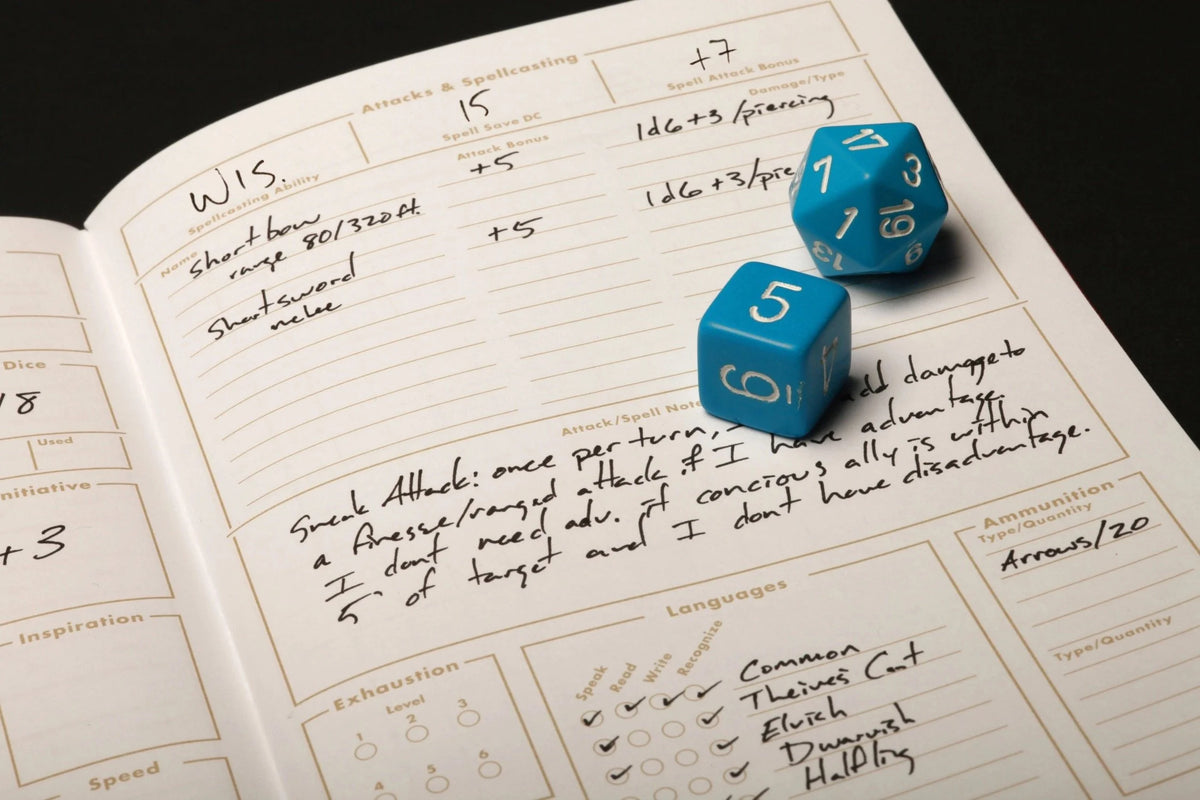 Attacks & Spellcasting
WIS.
Spellcasting Ability
15
Spell Save DC
+7
Spell Attack Bonus
Name
Attack Bonus
Damage/Type
Short bow
range 80/320ft.
+5
1d6+3/piercing
Shortsword
melee
+5
1d6+3/pie
17
7
3
1
19
13
9
5
6
Attack/Spell Note
Sneak Attack: once per turn, add damage to
a finesse/ranged attack if I have advantage.
I dont need adv. if concious ally is within
5' of target and I dont have disadvantage.
Dice
18
Used
Initiative
+3
Inspiration
Speed
Exhaustion
Level
1
2
3
4
5
6
Languages
Speak
Read
Write
Recognize
Common
Theives Cant
Elvish
Dwarvish
Halfling
Ammunition
Type/Quantity
Arrows/20
Type/Quantity